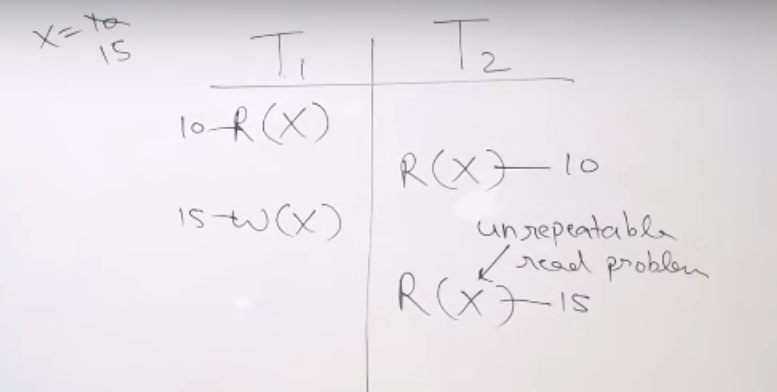 X = 10
15
T1 T2
10 - R(X)
R(X) - 10
15 - W(X)
unrepeatable
read problem
R(X) - 15